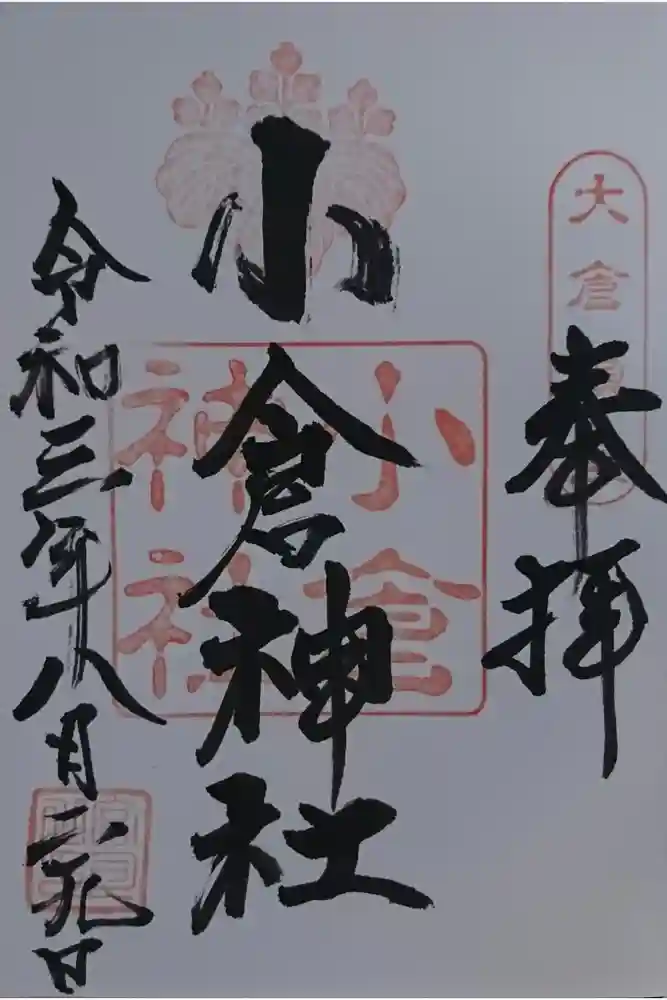 大倉
奉拝
小倉神社
小倉
神社
令和三年八月二九日